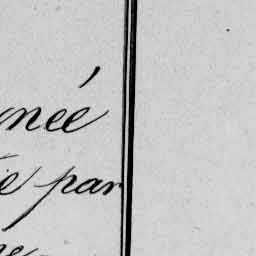 née
e par